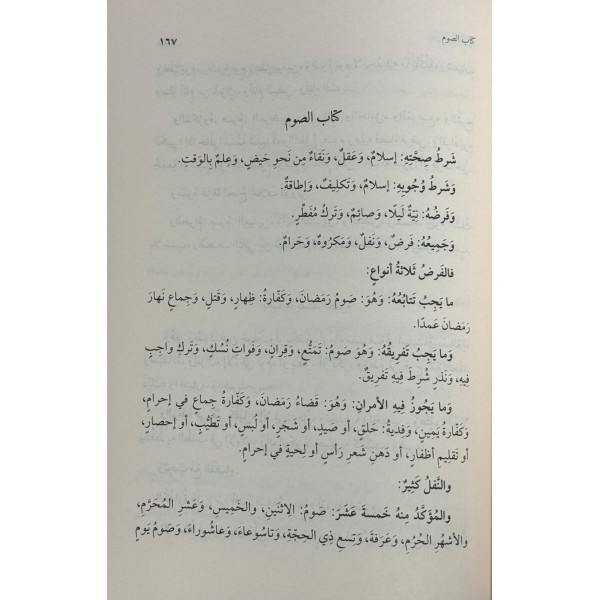 كتاب الصوم
١٦٧
كتاب الصوم
شَرطُ صِحَّتِهِ: إسلامٌ، وَعَقلٌ، وَنَقاءٌ مِن نَحوِ حَيضٍ، وَعِلمٌ بِالوَقتِ.
وَشَرطُ وُجُوبِهِ: إسلامٌ، وَتَكلِيفٌ، وَإطاقةٌ.
وَفَرضُهُ: نِيّةٌ لَيلًا، وَصائِمٌ، وَتَركُ مُفَطِّرٍ.
وَجَمِيعُهُ: فَرضٌ، وَنَفلٌ، وَمَكرُوهٌ، وَحَرامٌ.
فالفَرضُ ثَلاثةُ أنواعٍ:
ما يَجِبُ تَتابُعُهُ: وَهُوَ: صَومُ رَمَضانَ، وَكَفّارةُ: ظِهارٍ، وَقَتلٍ، وَجِماعٍ نَهارَ
رَمَضانَ عَمدًا.
وَما يَجِبُ تَفرِيقُهُ: وَهُوَ صَومُ: تَمَتُّعٍ، وَقِرانٍ، وَفَواتِ نُسُكٍ، وَتَركِ واجِبٍ
فِيهِ، وَنَذرٍ شُرِطَ فِيهِ تَفرِيقٌ.
وَما يَجُوزُ فِيهِ الأمرانِ: وَهُوَ: قَضاءُ رَمَضانَ، وَكَفّارةُ جِماعٍ في إحرامٍ،
وَكَفّارةُ يَمِينٍ، وَفِديةُ: حَلقٍ، أو صَيدٍ، أو شَجَرٍ، أو لُبسٍ، أو تَطَيُّبٍ، أو إحصارٍ،
أو تَقلِيمِ أظفارٍ، أو دَهنِ شَعرِ رَأسٍ أو لِحيةٍ في إحرامٍ.
والنَّفلُ كَثِيرٌ:
والمُؤَكَّدُ مِنهُ خَمسةَ عَشَرَ: صَومُ: الِاثنَينِ، والخَمِيسِ، وَعَشرِ المُحَرَّمِ،
والأشهُرِ الحُرُمِ، وَعَرَفةَ، وَتِسعِ ذِي الحِجّةِ، وَتاسُوعاءَ، وَعاشُوراءَ، وَصَومُ يَومٍ